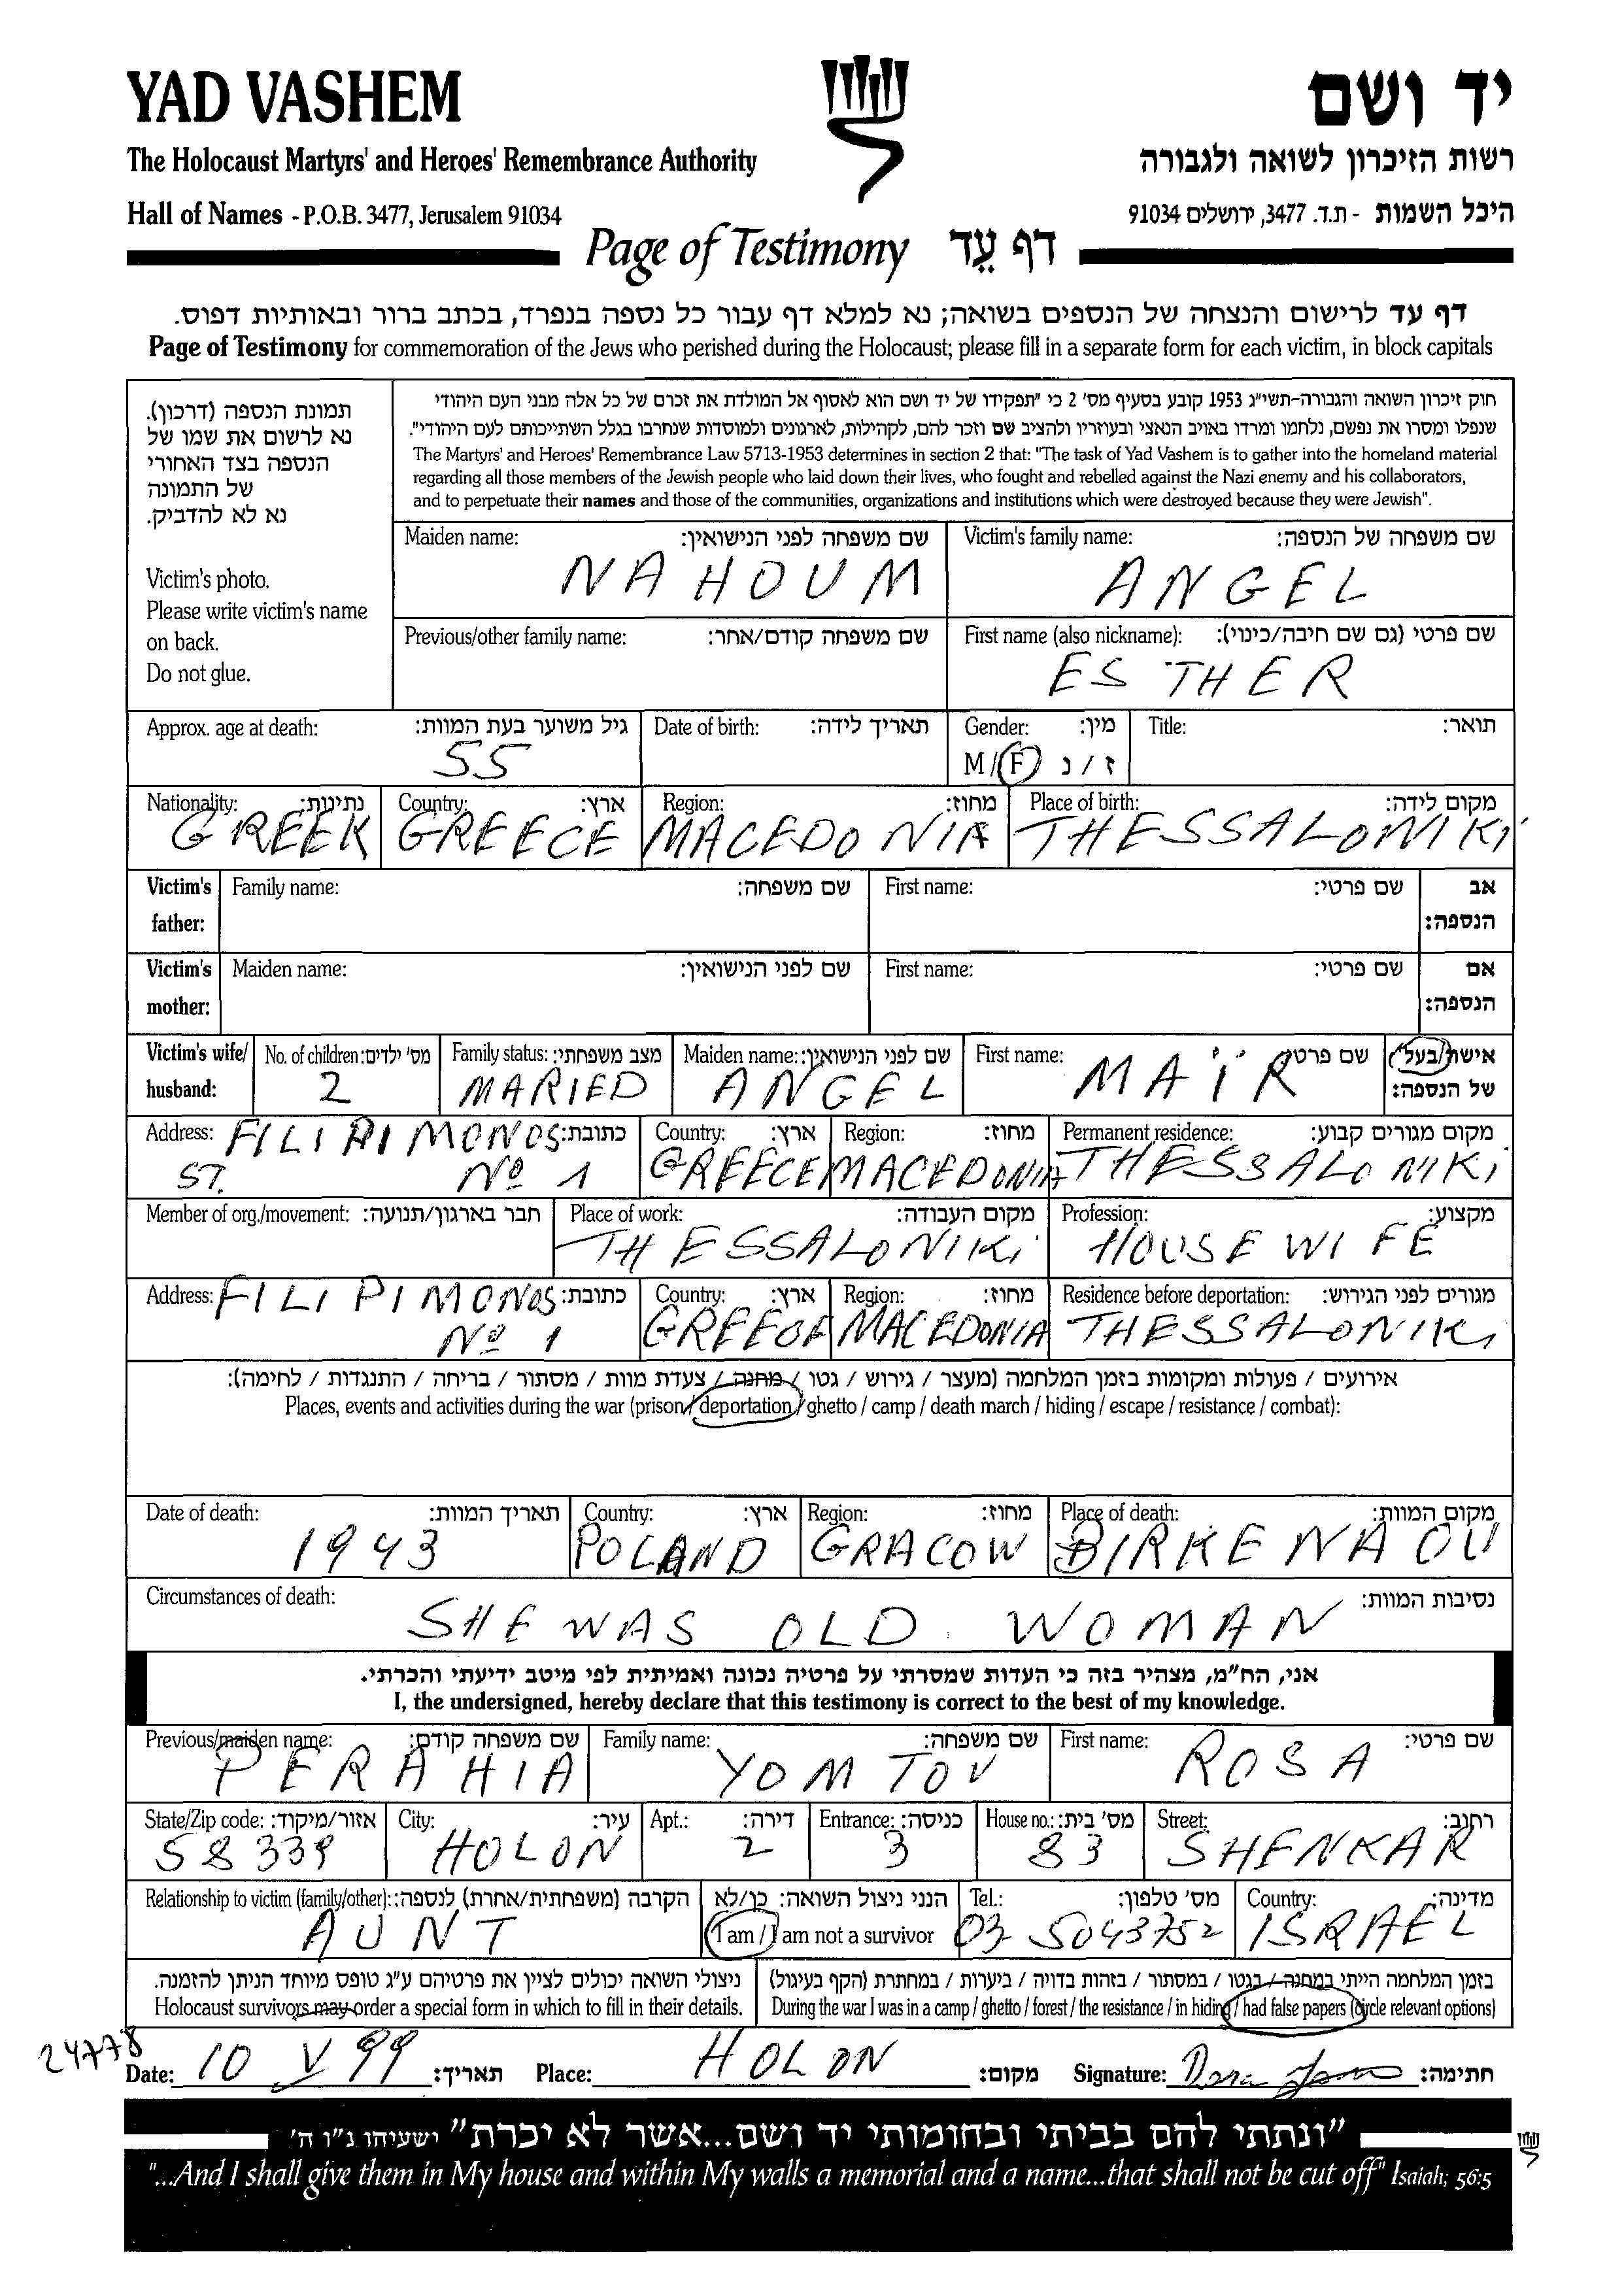 YAD VASHEM
יד ושם
The Holocaust Martyrs' and Heroes' Remembrance Authority
רשות הזיכרון לשואה ולגבורה
Hall of Names - P.O.B. 3477, Jerusalem 91034
היכל השמות - ת.ד. 3477, ירושלים 91034
Page of Testimony דף עֵד
דף עד לרישום והנצחה של הנספים בשואה; נא למלא דף עבור כל נספה בנפרד, בכתב ברור ובאותיות דפוס.
Page of Testimony for commemoration of the Jews who perished during the Holocaust; please fill in a separate form for each victim, in block capitals
תמונת הנספה (דרכון).
נא לרשום את שמו של
הנספה בצד האחורי
של התמונה
נא לא להדביק.
Victim's photo.
Please write victim's name
on back.
Do not glue.
חוק זיכרון השואה והגבורה-תשי"ג 1953 קובע בסעיף מס' 2 כי "תפקידו של יד ושם הוא לאסוף אל המולדת את זכרם של כל אלה מבני העם היהודי
שנפלו ומסרו את נפשם, נלחמו ומרדו באויב הנאצי ובעוזריו ולהציב שם וזכר להם, לקהילות, לארגונים ולמוסדות שנחרבו בגלל השתייכותם לעם היהודי".
The Martyrs' and Heroes' Remembrance Law 5713-1953 determines in section 2 that: "The task of Yad Vashem is to gather into the homeland material
regarding all those members of the Jewish people who laid down their lives, who fought and rebelled against the Nazi enemy and his collaborators,
and to perpetuate their names and those of the communities, organizations and institutions which were destroyed because they were Jewish".
Maiden name: שם משפחה לפני הנישואין:
NAHOUM
Victim's family name: שם משפחה של הנספה:
ANGEL
Previous/other family name: שם משפחה קודם/אחר:
First name (also nickname): שם פרטי (גם שם חיבה/כינוי):
ESTHER
Approx. age at death: גיל משוער בעת המוות:
55
Date of birth: תאריך לידה:
Gender: מין:
M / F ז / נ
Title: תואר:
Nationality: נתינות:
GREEK
Country: ארץ:
GREECE
Region: מחוז:
MACEDONIA
Place of birth: מקום לידה:
THESSALONIKI
Victim's father: Family name: שם משפחה: First name: שם פרטי: אב הנספה:
Victim's mother: Maiden name: שם לפני הנישואין: First name: שם פרטי: אם הנספה:
Victim's wife/ husband:
No. of children: מס' ילדים:
2
Family status: מצב משפחתי:
MARIED
Maiden name: שם לפני הנישואין:
ANGEL
First name: שם פרטי:
MAÏR
אישת/בעל של הנספה:
Address: כתובת:
FILIPIMONOS
ST. No 1
Country: ארץ:
GREECE
Region: מחוז:
MACEDONIA
Permanent residence: מקום מגורים קבוע:
THESSALONIKI
Member of org./movement: חבר בארגון/תנועה:
Place of work: מקום העבודה:
THESSALONIKI
Profession: מקצוע:
HOUSEWIFE
Address: כתובת:
FILIPIMONOS
No 1
Country: ארץ:
GREECE
Region: מחוז:
MACEDONIA
Residence before deportation: מגורים לפני הגירוש:
THESSALONIKI
אירועים / פעולות ומקומות בזמן המלחמה (מעצר / גירוש / גטו / מחנה / צעדת מוות / מסתור / בריחה / התנגדות / לחימה):
Places, events and activities during the war (prison / deportation / ghetto / camp / death march / hiding / escape / resistance / combat):
Date of death: תאריך המוות:
1943
Country: ארץ:
POLAND
Region: מחוז:
GRACOW
Place of death: מקום המוות:
BIRKENAOU
Circumstances of death: נסיבות המוות:
SHE WAS OLD WOMAN
אני, הח"מ, מצהיר בזה כי העדות שמסרתי על פרטיה נכונה ואמיתית לפי מיטב ידיעתי והכרתי.
I, the undersigned, hereby declare that this testimony is correct to the best of my knowledge.
Previous/maiden name: שם משפחה קודם:
PERAHIA
Family name: שם משפחה:
YOM TOV
First name: שם פרטי:
ROSA
State/Zip code: אזור/מיקוד:
58339
City: עיר:
HOLON
Apt.: דירה:
2
Entrance: כניסה:
3
House no.: מס' בית:
83
Street: רחוב:
SHENKAR
Relationship to victim (family/other): הקרבה (משפחתית/אחרת) לנספה:
AUNT
הנני ניצול השואה: כן/לא
I am / I am not a survivor
Tel.: מס' טלפון:
03 5043752
Country: מדינה:
ISRAEL
ניצולי השואה יכולים לציין את פרטיהם ע"ג טופס מיוחד הניתן להזמנה.
Holocaust survivors may order a special form in which to fill in their details.
בזמן המלחמה הייתי במחנה / בגטו / במסתור / בזהות בדויה / ביערות / במחתרת (הקף בעיגול)
During the war I was in a camp / ghetto / forest / the resistance / in hiding / had false papers (circle relevant options)
24778
Date: 10 V 99 תאריך: Place: HOLON מקום: Signature: חתימה:
"ונתתי להם בביתי ובחומותי יד ושם...אשר לא יכרת" ישעיהו נ"ו ה'
"...And I shall give them in My house and within My walls a memorial and a name...that shall not be cut off" Isaiah, 56:5